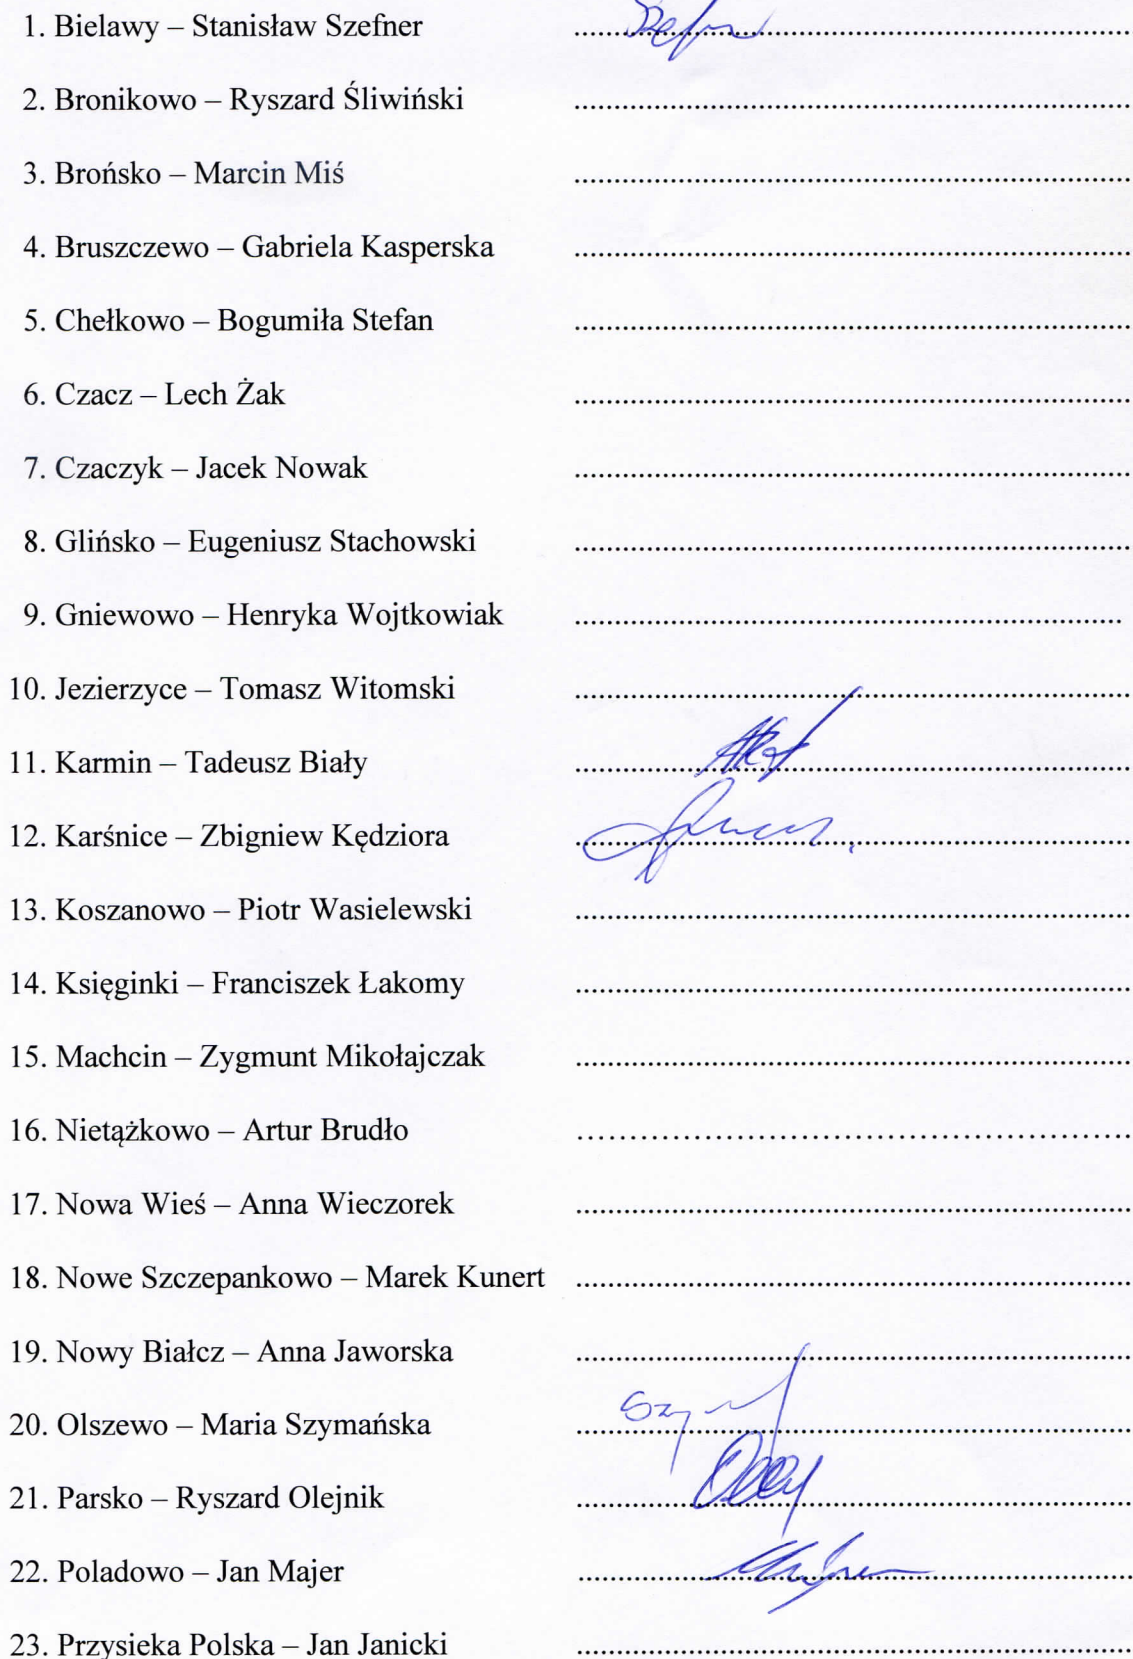 1. Bielawy – Stanisław Szefner ........................................................................
2. Bronikowo – Ryszard Śliwiński ........................................................................
3. Brońsko – Marcin Miś ........................................................................
4. Bruszczewo – Gabriela Kasperska ........................................................................
5. Chełkowo – Bogumiła Stefan ........................................................................
6. Czacz – Lech Żak ........................................................................
7. Czaczyk – Jacek Nowak ........................................................................
8. Glińsko – Eugeniusz Stachowski ........................................................................
9. Gniewowo – Henryka Wojtkowiak .......................................................................
10. Jezierzyce – Tomasz Witomski ........................................................................
11. Karmin – Tadeusz Biały ........................................................................
12. Karśnice – Zbigniew Kędziora ........................................................................
13. Koszanowo – Piotr Wasielewski ........................................................................
14. Księginki – Franciszek Łakomy ........................................................................
15. Machcin – Zygmunt Mikołajczak ........................................................................
16. Nietążkowo – Artur Brudło ........................................................
17. Nowa Wieś – Anna Wieczorek ........................................................................
18. Nowe Szczepankowo – Marek Kunert ........................................................................
19. Nowy Białcz – Anna Jaworska ........................................................................
20. Olszewo – Maria Szymańska ........................................................................
21. Parsko – Ryszard Olejnik ........................................................................
22. Poladowo – Jan Majer ........................................................................
23. Przysieka Polska – Jan Janicki ........................................................................